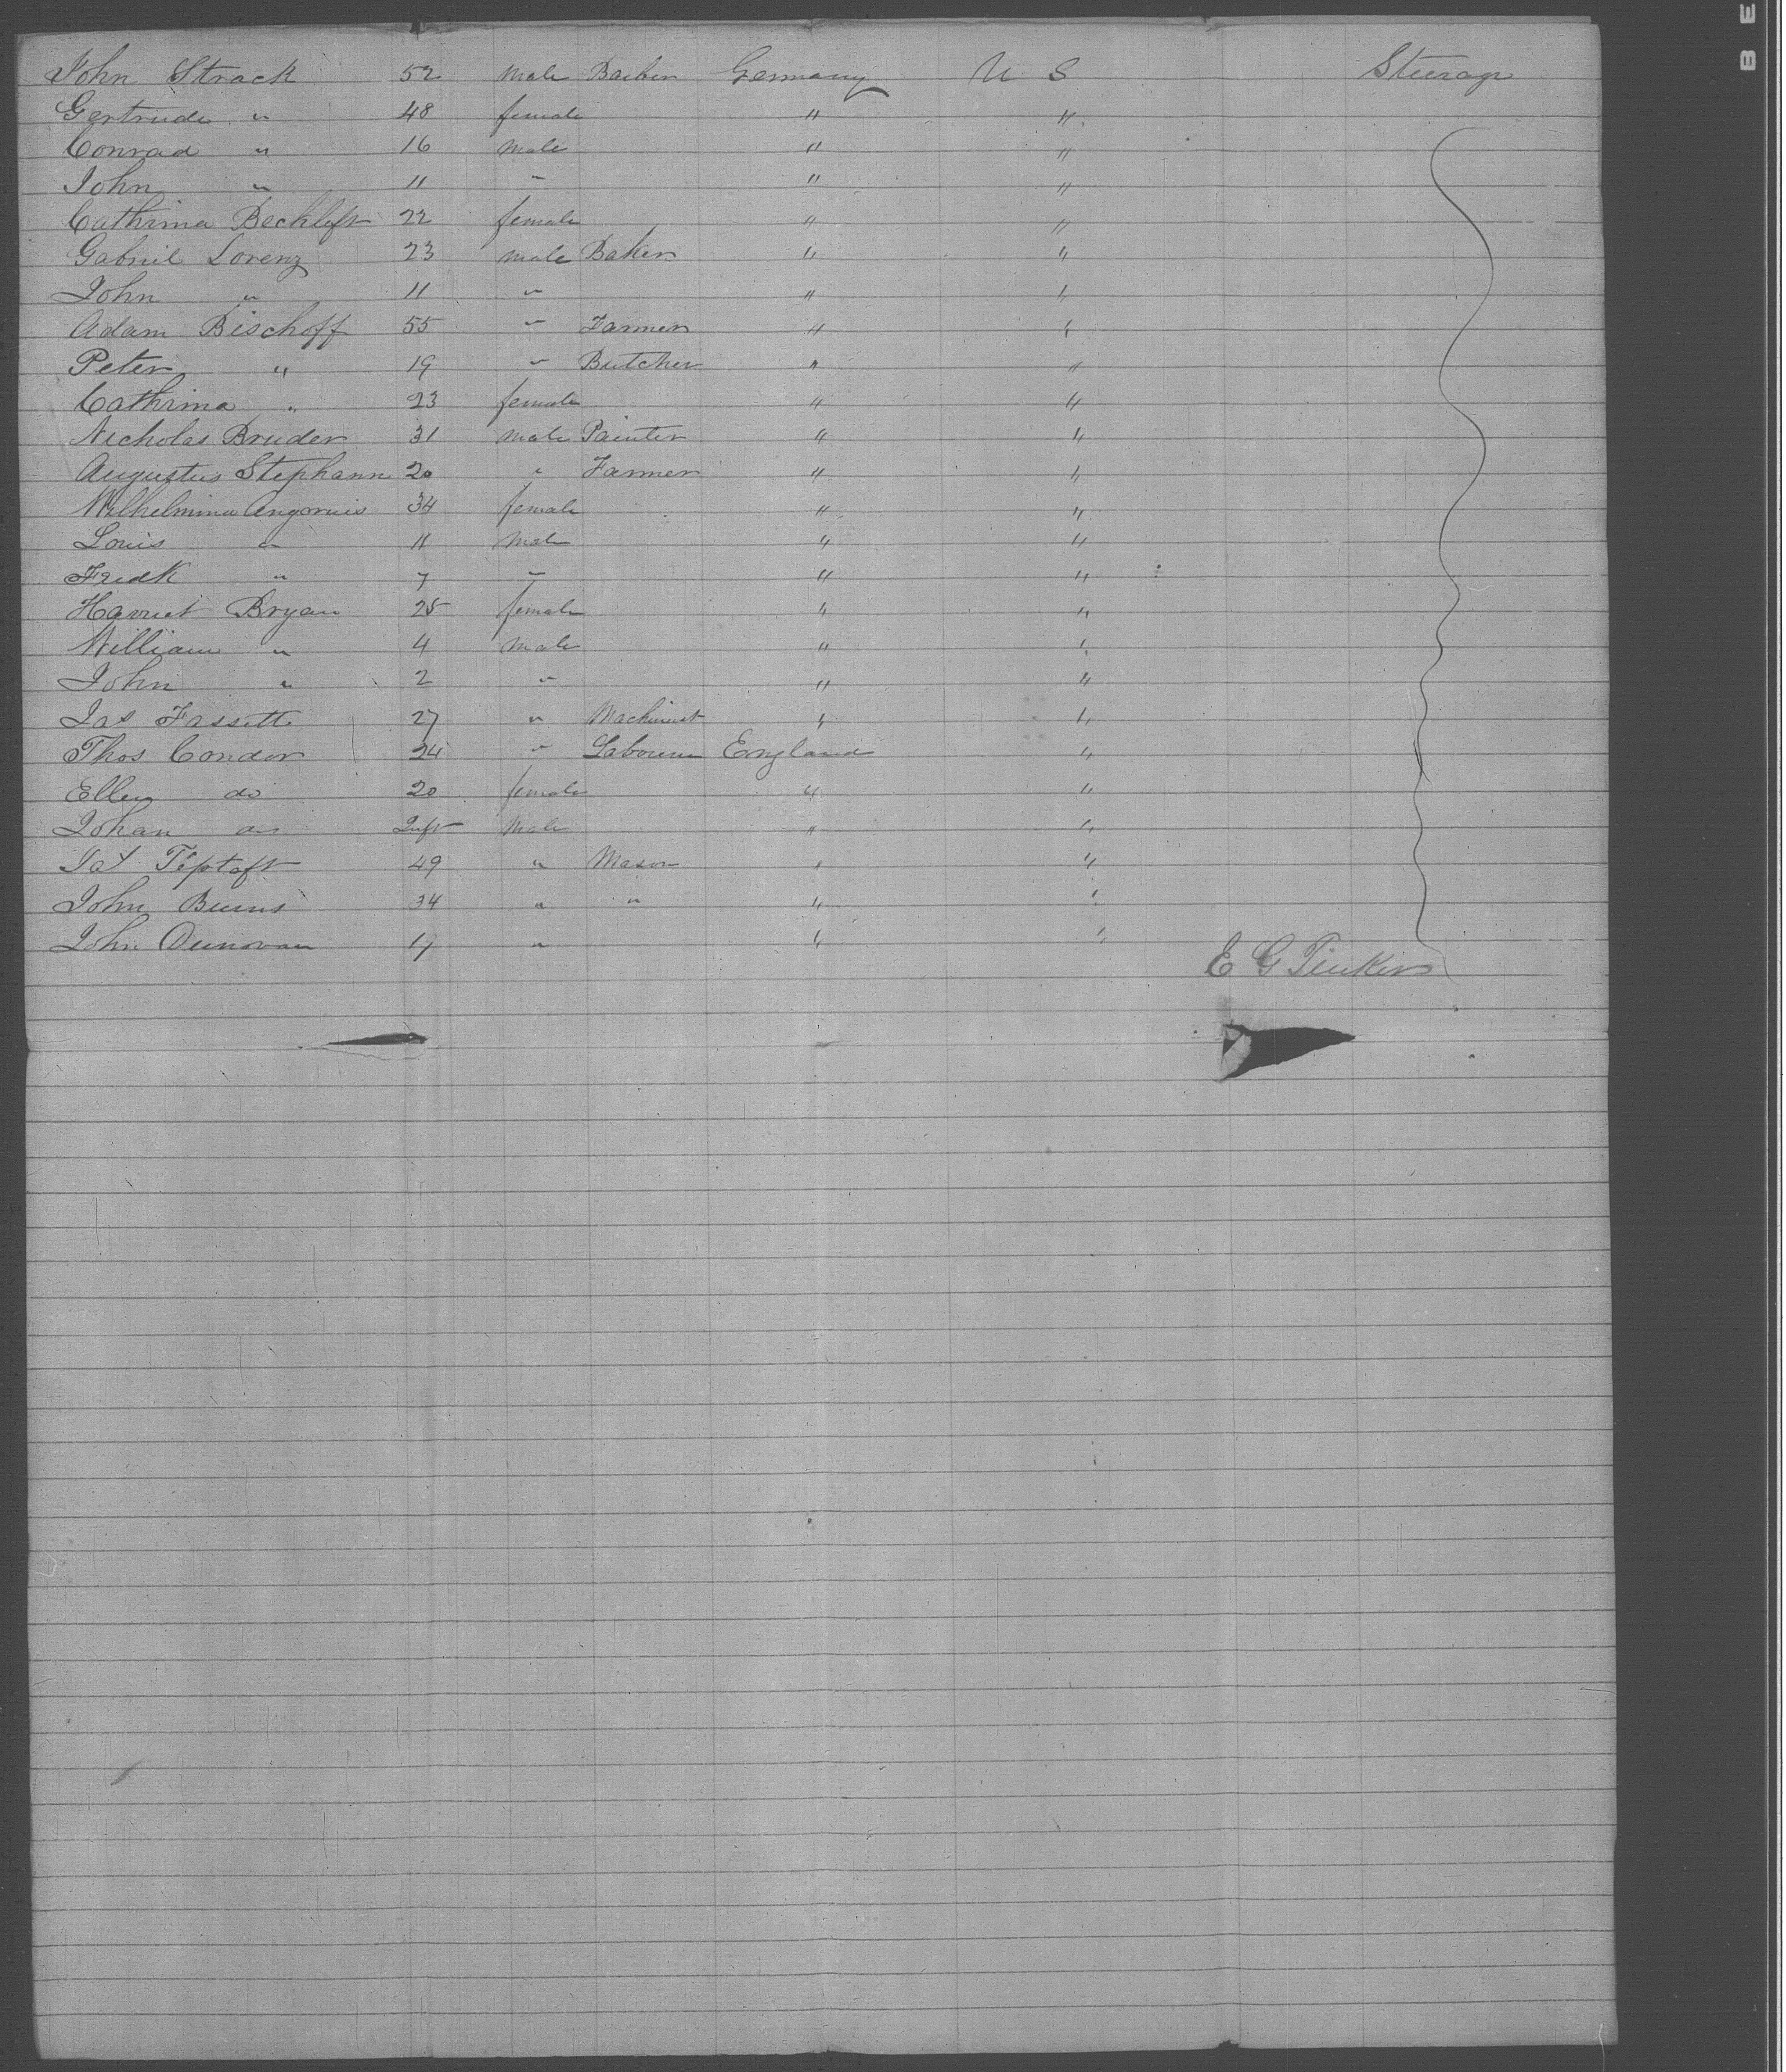 John Strack 52 male Barber Germany U S Steerage
Gertrude " 48 female " "
Conrad " 16 male " "
John " 11 " " "
Cathrina Beckleft 22 female " "
Gabriel Lorenz 23 male Baker " "
John " 11 " " "
Adam Bischoff 55 " Farmer " "
Peter " 19 " Butcher " "
Cathrina " 23 female " "
Nicholas Bruder 31 male Painter " "
Augustus Stephann 20 " Farmer " "
Wilhelmina 34 female " "
Louis " 11 male " "
Fredk " 7 " " "
Harriet Bryan 25 female " "
William " 4 male " "
John " 2 " " "
Jas Fassett 27 " Machinist " "
Thos Condor 24 " Labourer England "
Ellen do 20 female " "
Johan do Inft Male " "
Jas Tiptaft 49 " Mason " "
John Burns 34 " " " "
John Dunovan 19 " " "
E G Tinker